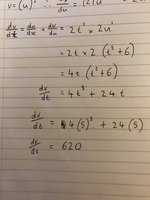 v = (u)² ∴ dv/du = (2)u
dv/dt = du/dx × dv/du = 2t' × 2u'
= 2t × 2 (t² + 6)
= 4t (t² + 6)
dv/dt = 4t³ + 24t
dv/dt = 4(5)³ + 24(5)
dv/dt = 620